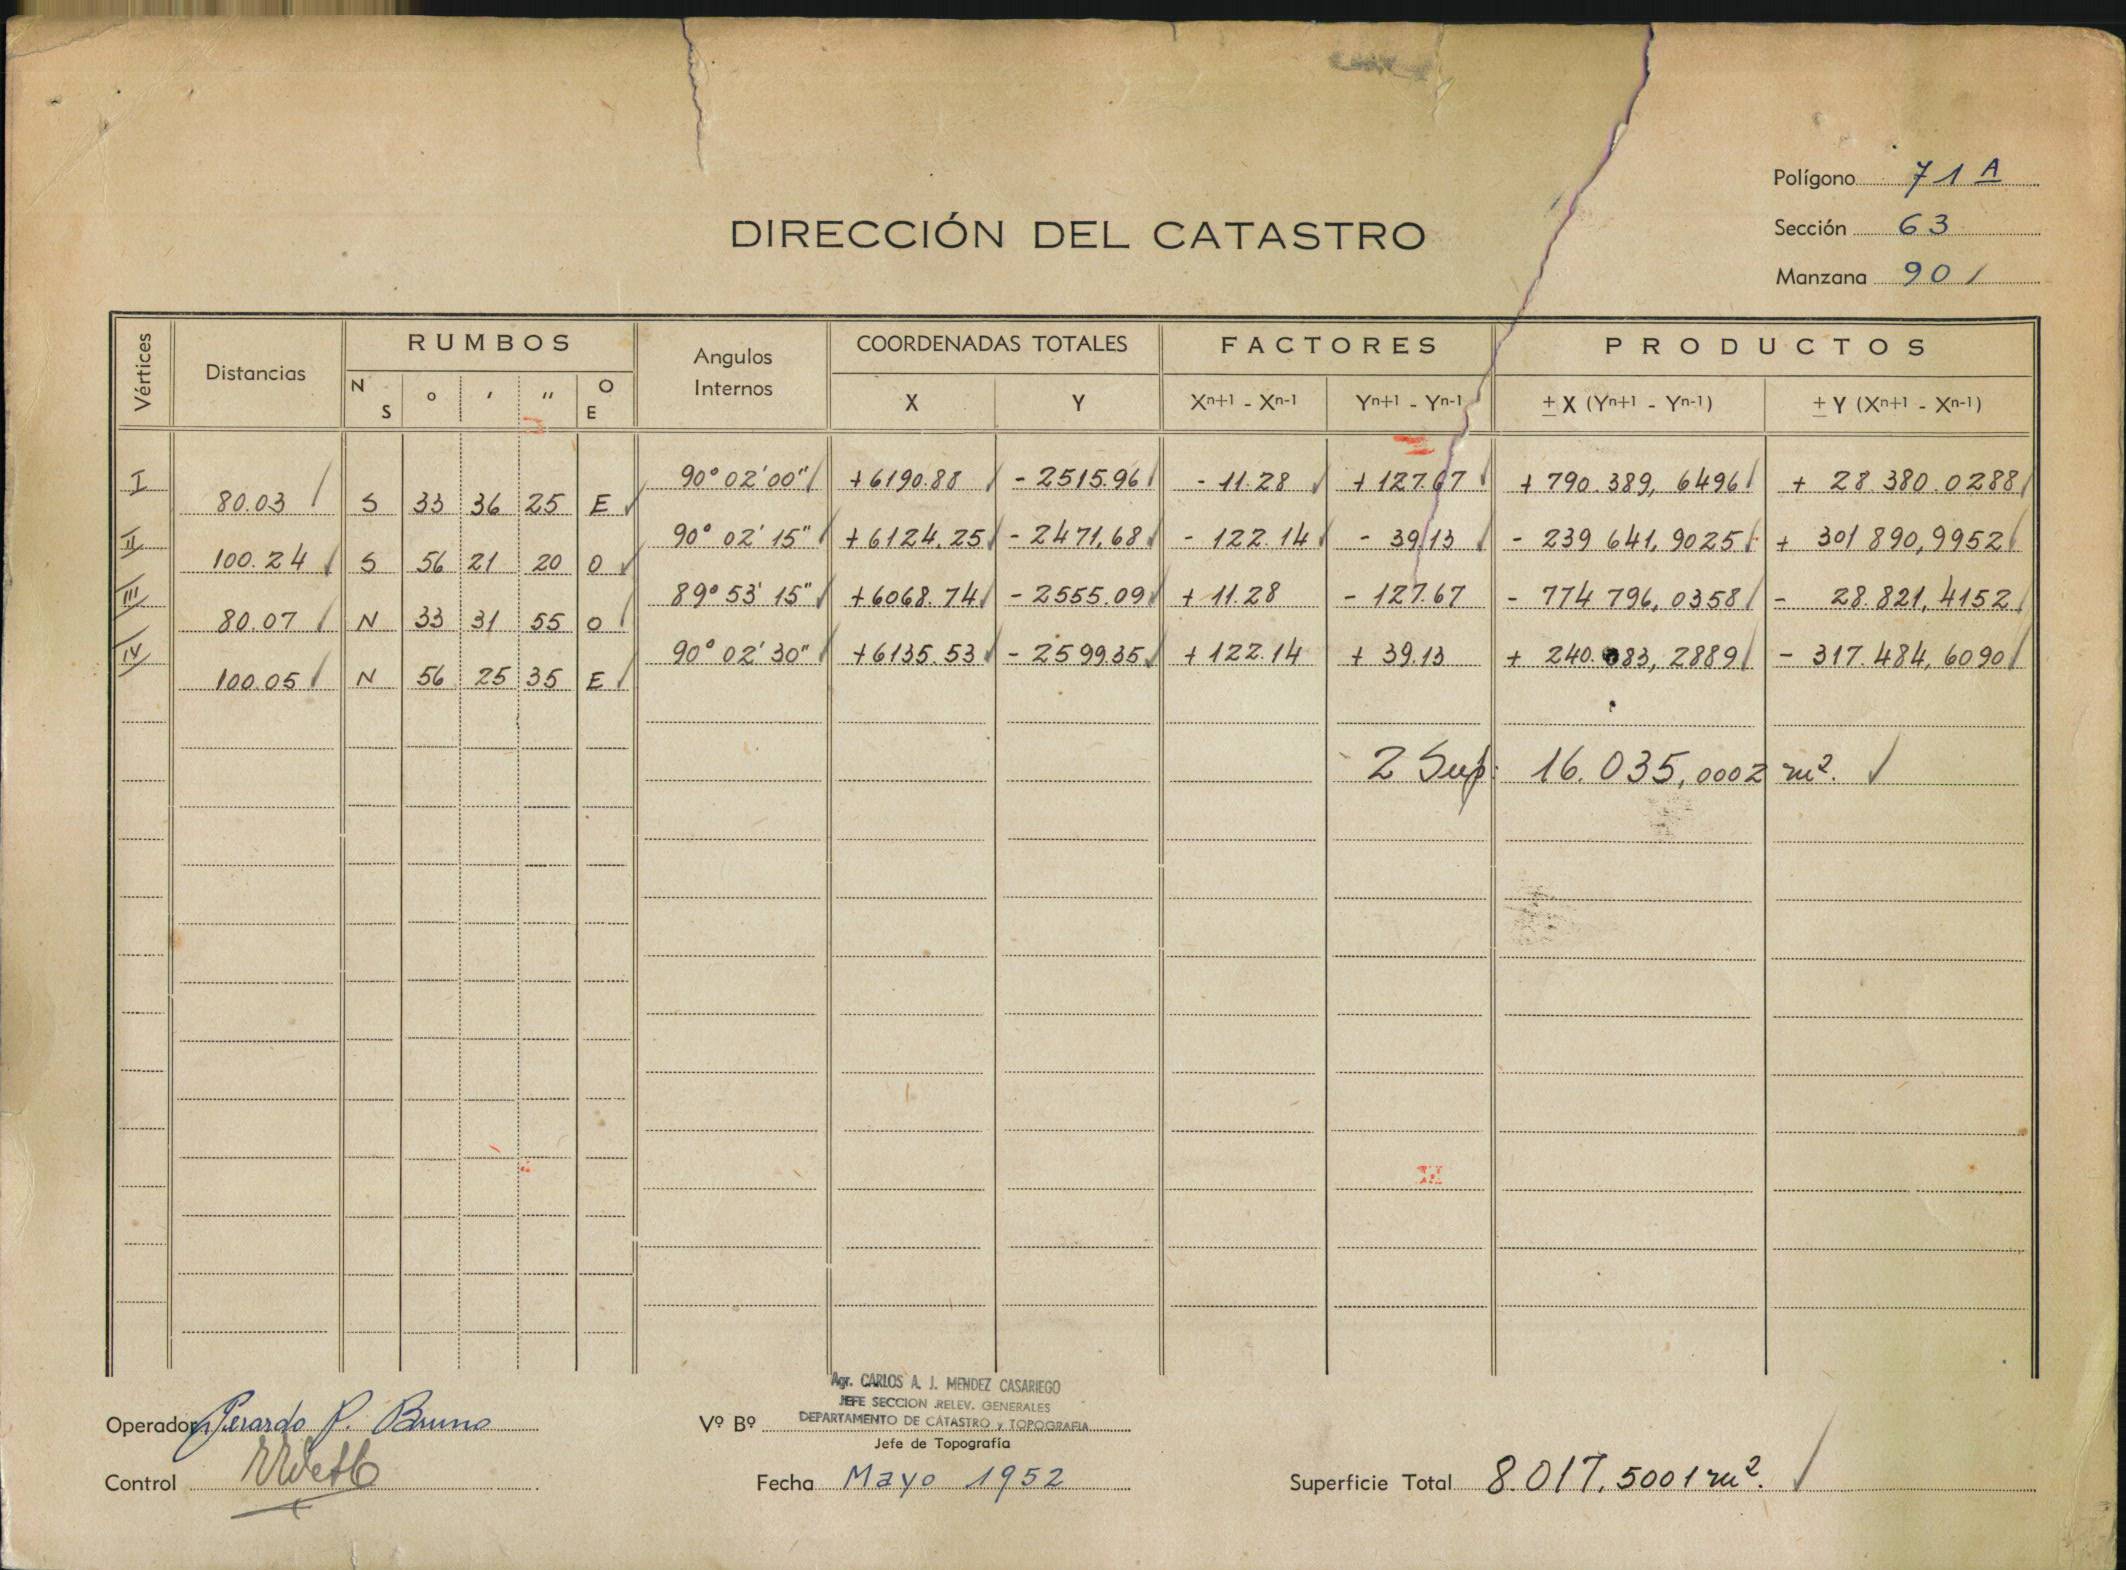 Polígono 71 A
Sección 63
Manzana 901
DIRECCIÓN DEL CATASTRO
Vértices Distancias RUMBOS Angulos Internos COORDENADAS TOTALES FACTORES PRODUCTOS
N S ° ′ ″ O E X Y Xn+1 - Xn-1 Yn+1 - Yn-1 ± X (Yn+1 - Yn-1) ± Y (Xn+1 - Xn-1)
I 90° 02' 00" +6190.88 - 2515.96 - 11.28 + 127.67 + 790.389, 6496 + 28.380.0288
80.03 S 33 36 25 E
II 90° 02' 15" +6124.25 - 2471,68 - 122.14 - 39.13 - 239 641,9025 + 301 890,9952
100.24 S 56 21 20 O
III 89° 53' 15" +6068.74 - 2555.09 + 11.28 - 127.67 - 774 796,0358 - 28.821,4152
80.07 N 33 31 55 O
IV 90° 02' 30" +6135.53 - 2599.35 + 122.14 + 39.13 + 240.083,2889 - 317.484,6090
100.05 N 56 25 35 E
2 Sup: 16.035,0002 m².
Agr. CARLOS A. J. MENDEZ CASARIEGO
JEFE SECCION RELEV. GENERALES
DEPARTAMENTO DE CATASTRO y TOPOGRAFIA
Operador Gerardo P. Bruno Vº Bº
Jefe de Topografía
Control Fecha Mayo 1952 Superficie Total 8.017,5001 m².